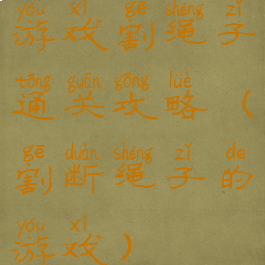 yóu xì gē shéng zǐ
游戏割绳子
tōng guān gōng lüè
通关攻略（
gē duàn shéng zǐ de
割断绳子的
yóu xì
游戏）